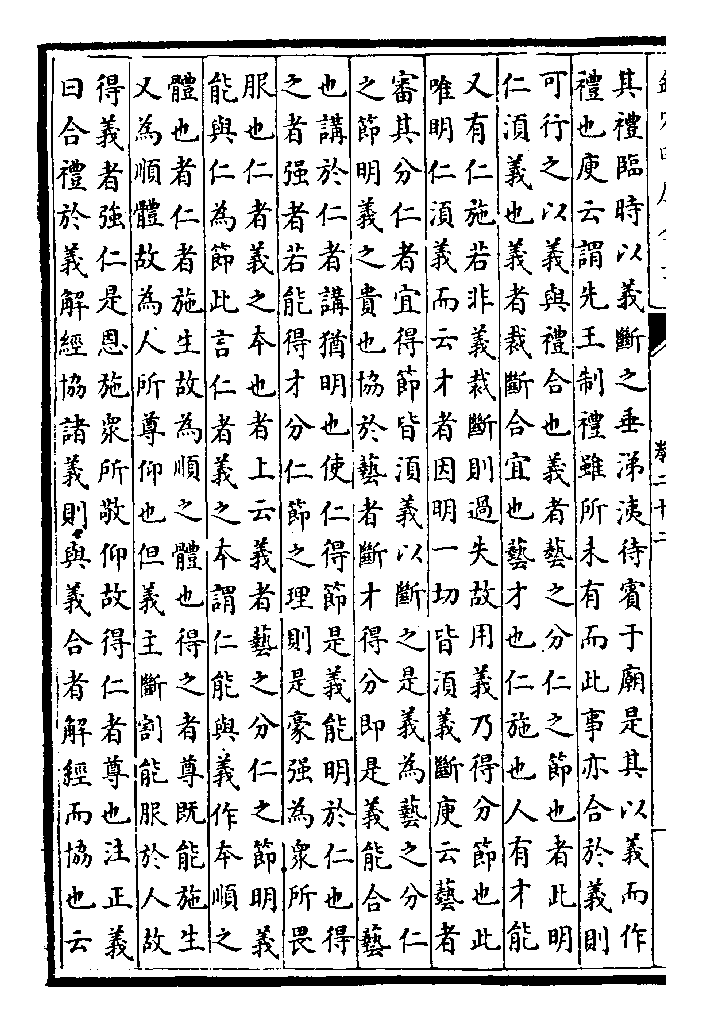 卷二十二
其禮臨時以義斷之垂涕洟待賓于廟是其以義而作
禮也庾云謂先王制禮雖所未有而此事亦合於義則
可行之以義與禮合也義者藝之分仁之節也者此明
仁湏義也義者裁斷合宜也藝才也仁施也人有才能
又有仁施若非義裁斷則過失故用義乃得分節也此
唯明仁湏義而云才者因明一切皆湏義斷庾云藝者
審其分仁者宜得節皆湏義以斷之是義為藝之分仁
之節明義之貴也協於藝者斷才得分即是義能合藝
也講於仁者講猶明也使仁得節是義能明於仁也得
之者强者若能得才分仁節之理則是豪强為衆所畏
服也仁者義之本也者上云義者藝之分仁之節明義
能與仁為節此言仁者義之本謂仁能與義作本順之
體也者仁者施生故為順之體也得之者尊既能施生
又為順體故為人所尊仰也但義主斷割能服於人故
得義者強仁是恩施衆所敬仰故得仁者尊也注正義
曰合禮於義解經協諸義則與義合者解經而協也云